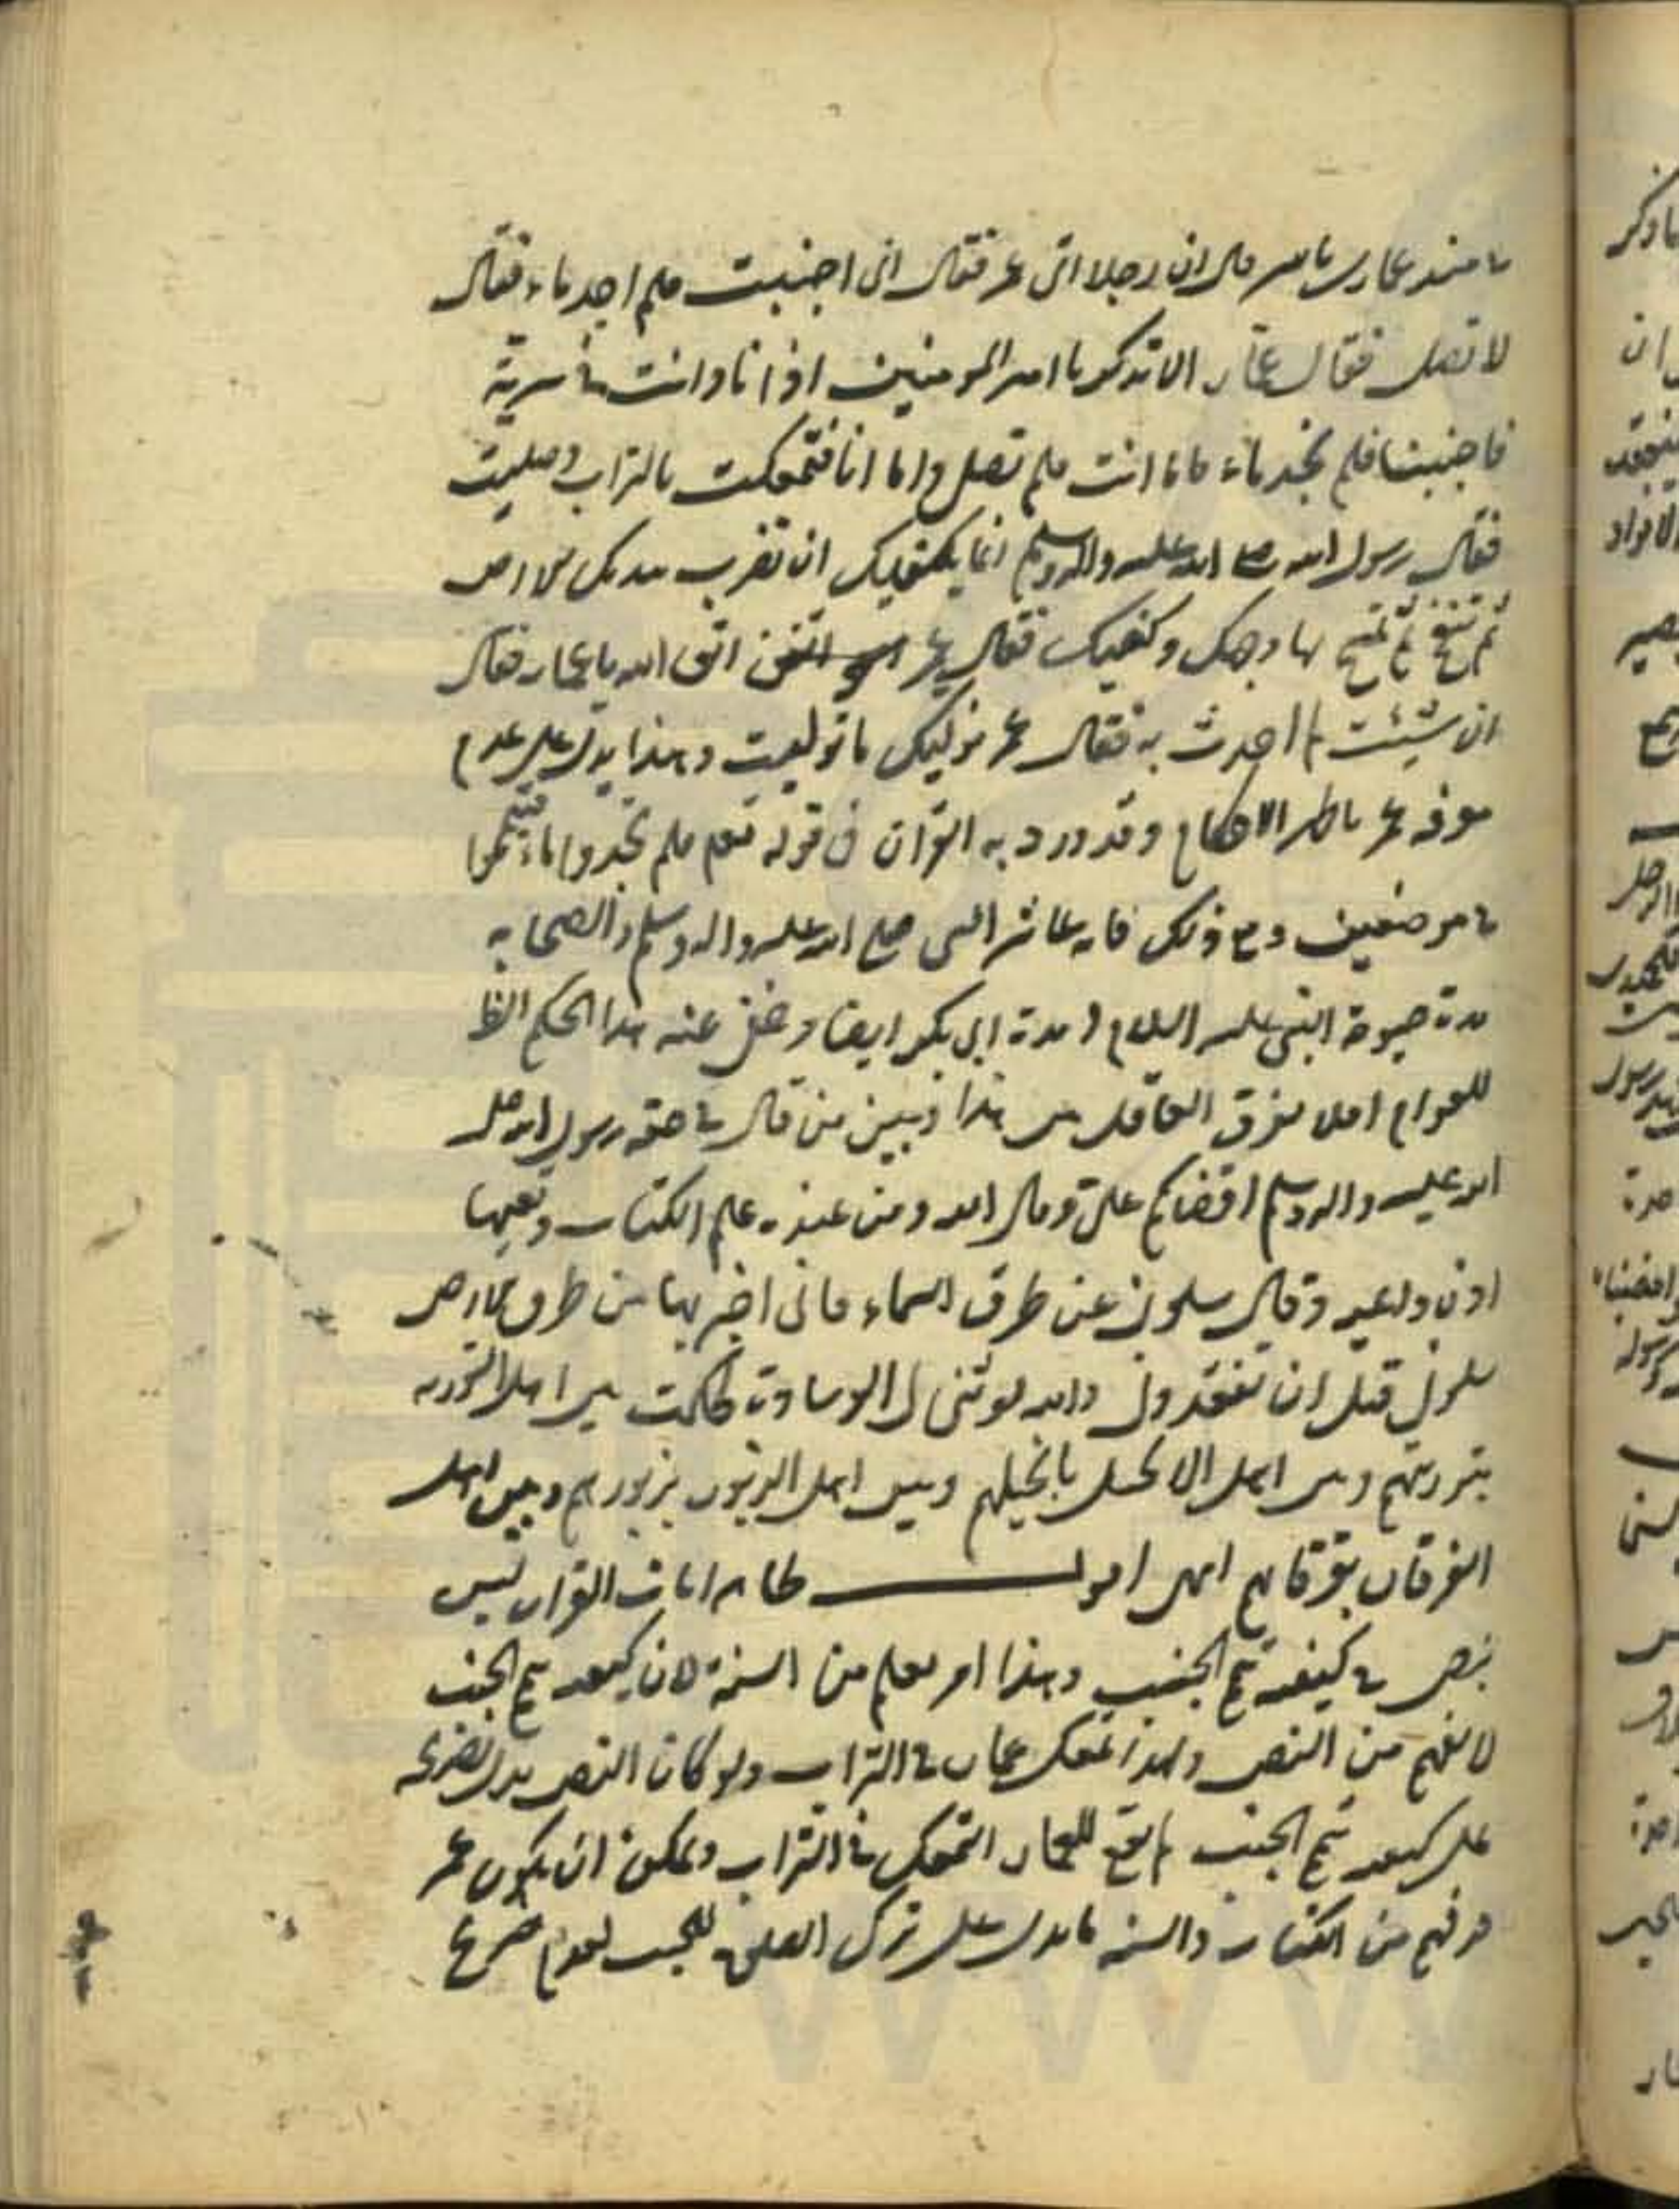 في مسند عمار بن ياسر قال ان رجلا اتى عمر فقال انى اجنبت فلم اجد ماء فقال
لا تصل فقال عمار الا تذكر يا امير المومنين اذ انا وانت في سرية
فاجنبنا فلم نجد ماء فاما انت فلم تصل واما انا فتمعكت بالتراب وصليت
فقال رسول الله صلى الله عليه واله وسلم انما يكفيك ان تضرب بيديك الارض
ثم تنفخ ثم تمسح بها وجهك وكفيك فقال عمر اتق الله يا عمار فقال
ان شئت لم احدث به فقال عمر نوليك ما توليت وهذا يدل على عدم
معرفة عمر بظاهر الاحكام وقد ورد به القران في قوله تعم فلم تجدوا ماء فتيمموا
في موضعين ومع ذلك فانه عاشر النبى صلع الله عليه واله وسلم والصحابه
مدة حيوة النبى عليه السلام ومدة ابى بكر ايضا وخفى عنه هذا الحكم الظ
للعوام افلا يفرق العاقل بين هذا وبين من قال في حقه رسول الله صلى
الله عليه واله وسلم اقضاكم على وقال الله ومن عنده علم الكتاب وتعيها
اذن واعيه وقال سلونى عن طرق السماء فانى اخبر بها من طرق الارض
سلونى قبل ان تفقدونى والله لو ثنى لى الوسادة لحكمت بين اهل التورية
بتوريتهم وبين اهل الانجيل بانجيلهم وبين اهل الزبور بزبورهم وبين اهل
الفرقان بفرقانهم انتهى اقول ظاهر ايات القران ليس
بنص في كيفية تيمم الجنب وهذا امر يعلم من السنة لان كيفية تيمم الجنب
لا يفهم من النص ولهذا تمعك عمار في التراب ولو كان النص يدل بصريحه
على كيفية تيمم الجنب لم يقع للعمار التمعك في التراب ويمكن ان يكون عمر
قد فهم من الكتاب والسنه ما يدل على ترك الصلوة للجنب لعدم صريح